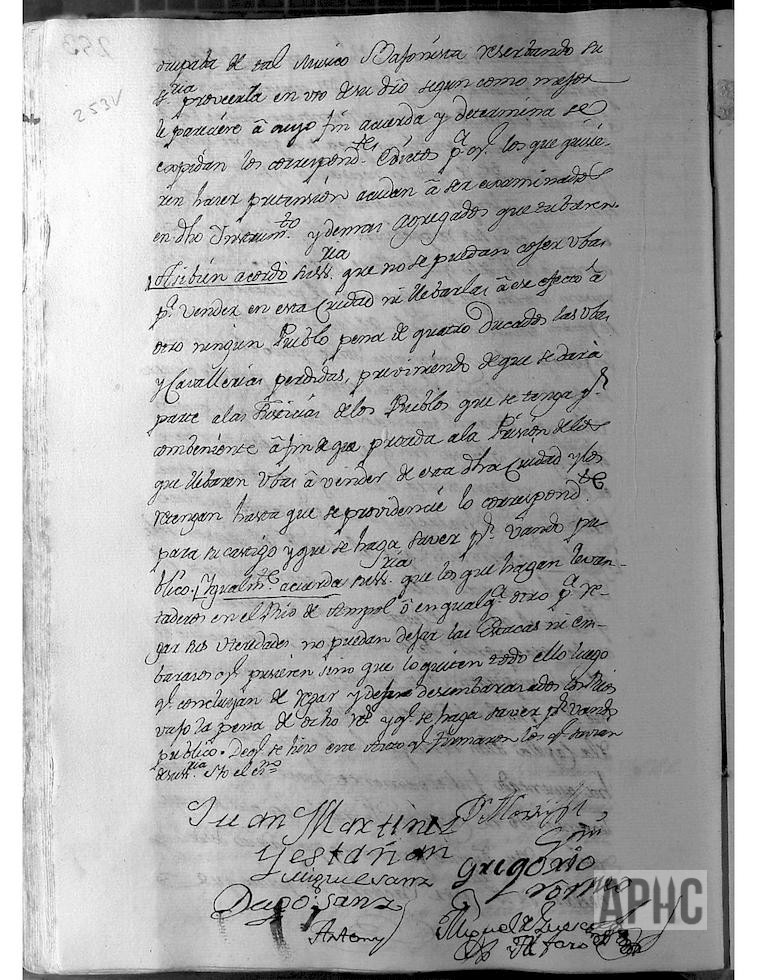 253
253v
ocupada de tal Musico Bajonista reserbando su
Sria proveerla en vso desu dro segun como mejor
le pareciere â cuyo fin acuerda y determina se
expidan los correspondtes Edictos pa qe los que quisie-
ren hacer pretension acudan â ser examinados
en dho Instrumto y demas agregados que tubieren.
Asibien acordo su SSria que no se puedan cojer vbas
pa vender en esta Ciudad ni llebarlas â ese efecto â
otro ningun Pueblo pena de quatro Ducados las vbas
y Cavallerias perdidas, previniendo de que se dará
parte alas Justicias delos Pueblos que se tenga pr
combeniente â fin de que proceda ala Prision delos
que llebaren vbas â vender de esta dha Ciudad y los
retengan hasta que se providencie lo correspondte
para su castigo y que se haga saver pr vando pu-
blico. Igualmte acuerda su SSria que los que hagan levan-
taderos en el Rio de ô en qualqa otro pa re-
gar sus Heredades no puedan dejar las Estacas ni em-
barazos qe pusieren sino que lo quiten todo ello luego
qe concluyan de regar y dejen desembarazados los Rios
vajo la pena de ocho rs y qe se haga saver pr vando
publico. De qe se hizo este Auto qe firmaron los qe savian
de su SSria Yo el esno
Juan Martinez
y estañan
Miguel Sanz
Gregorio
romeo
Diego Sanz
Antony
Miguel de Guesca
Alfaro
APHC